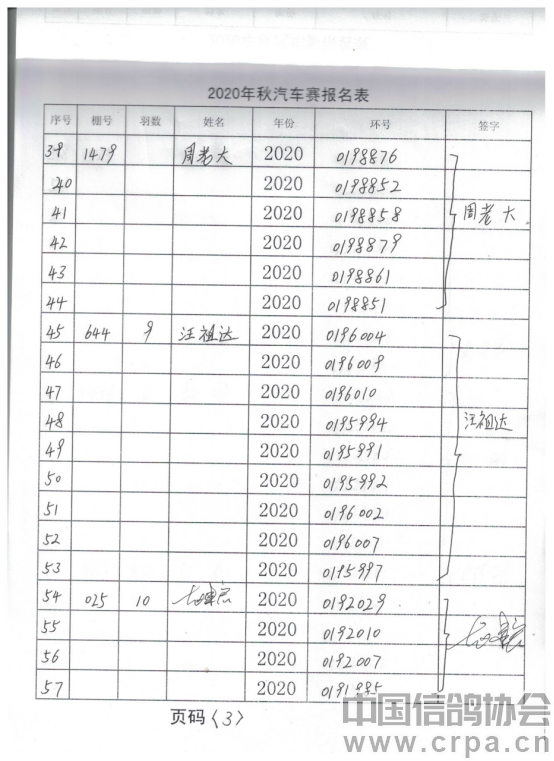 2020年秋汽车赛报名表
序号 棚号 羽数 姓名 年份 环号 签字
39 1479 周老大 2020 0198876
40 2020 0198852
41 2020 0198858 周老大
42 2020 0198879
43 2020 0198861
44 2020 0198851
45 644 9 汪祖达 2020 0196004
46 2020 0196009
47 2020 0196010
48 2020 0195994 汪祖达
49 2020 0195991
50 2020 0195992
51 2020 0196002
52 2020 0196007
53 2020 0195997
54 025 10 2020 0192029
55 2020 0192010
56 2020 0192007
57 2020 0191885
页码〈3〉
中国信鸽协会
www.crpa.cn